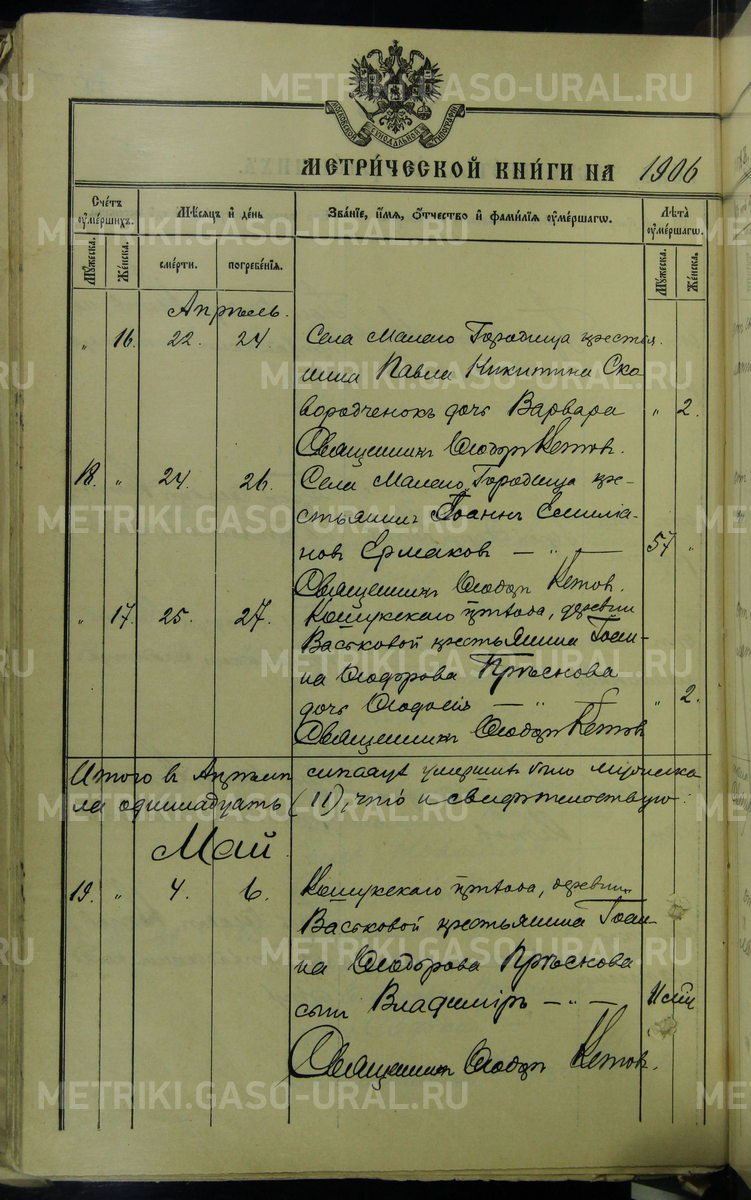 МЕТРИ́ЧЕСКОЙ КНИ́ГИ НА 1906
Сче́тъ ᲂу҆ме́ршихъ.
Мѣ́сяцъ и҆ де́нь
Зва́нїе, и҆́мѧ, ѻ҆́тчество и҆ фами́лїѧ ᲂу҆ме́ршагѡ.
Лѣ́та ᲂу҆ме́ршагѡ.
Мꙋ́жеска.
Же́нска.
сме́рти.
погребе́нїѧ.
Мꙋ́жеска.
Же́нска.
Апрѣль.
" 16. 22. 24. Села Малаго Городища крестья
нина Павла Никитина Ско
вородченокъ дочь Варвара " 2.
Священникъ Ѳеодоръ Кетовъ.
18. " 24. 26. Села Малаго Городища кре-
стьянинъ Іоаннъ Емилiа-
новъ Ермаковъ — " — 57 "
Священникъ Ѳеодоръ Кетовъ.
" 17. 25. 27. Кошукскаго прихода, деревни
Васьковой крестьянина Іоан-
на Ѳеодорова Прѣснова
дочь Ѳеодосія — " — " 2.
Священникъ Ѳеодоръ Кетовъ
Итого в Апрѣлѣ умершихъ было мужеска
одиннадцать (11), что и свидѣтельствую:
Май.
19. " 4. 6. Кошукскаго прихода, деревни
Васьковой крестьянина Іоан-
на Ѳеодорова Прѣснова
сынъ Владиміръ — " —
Священникъ Ѳеодоръ Кетовъ.
METRIKI.GASO-URAL.RU